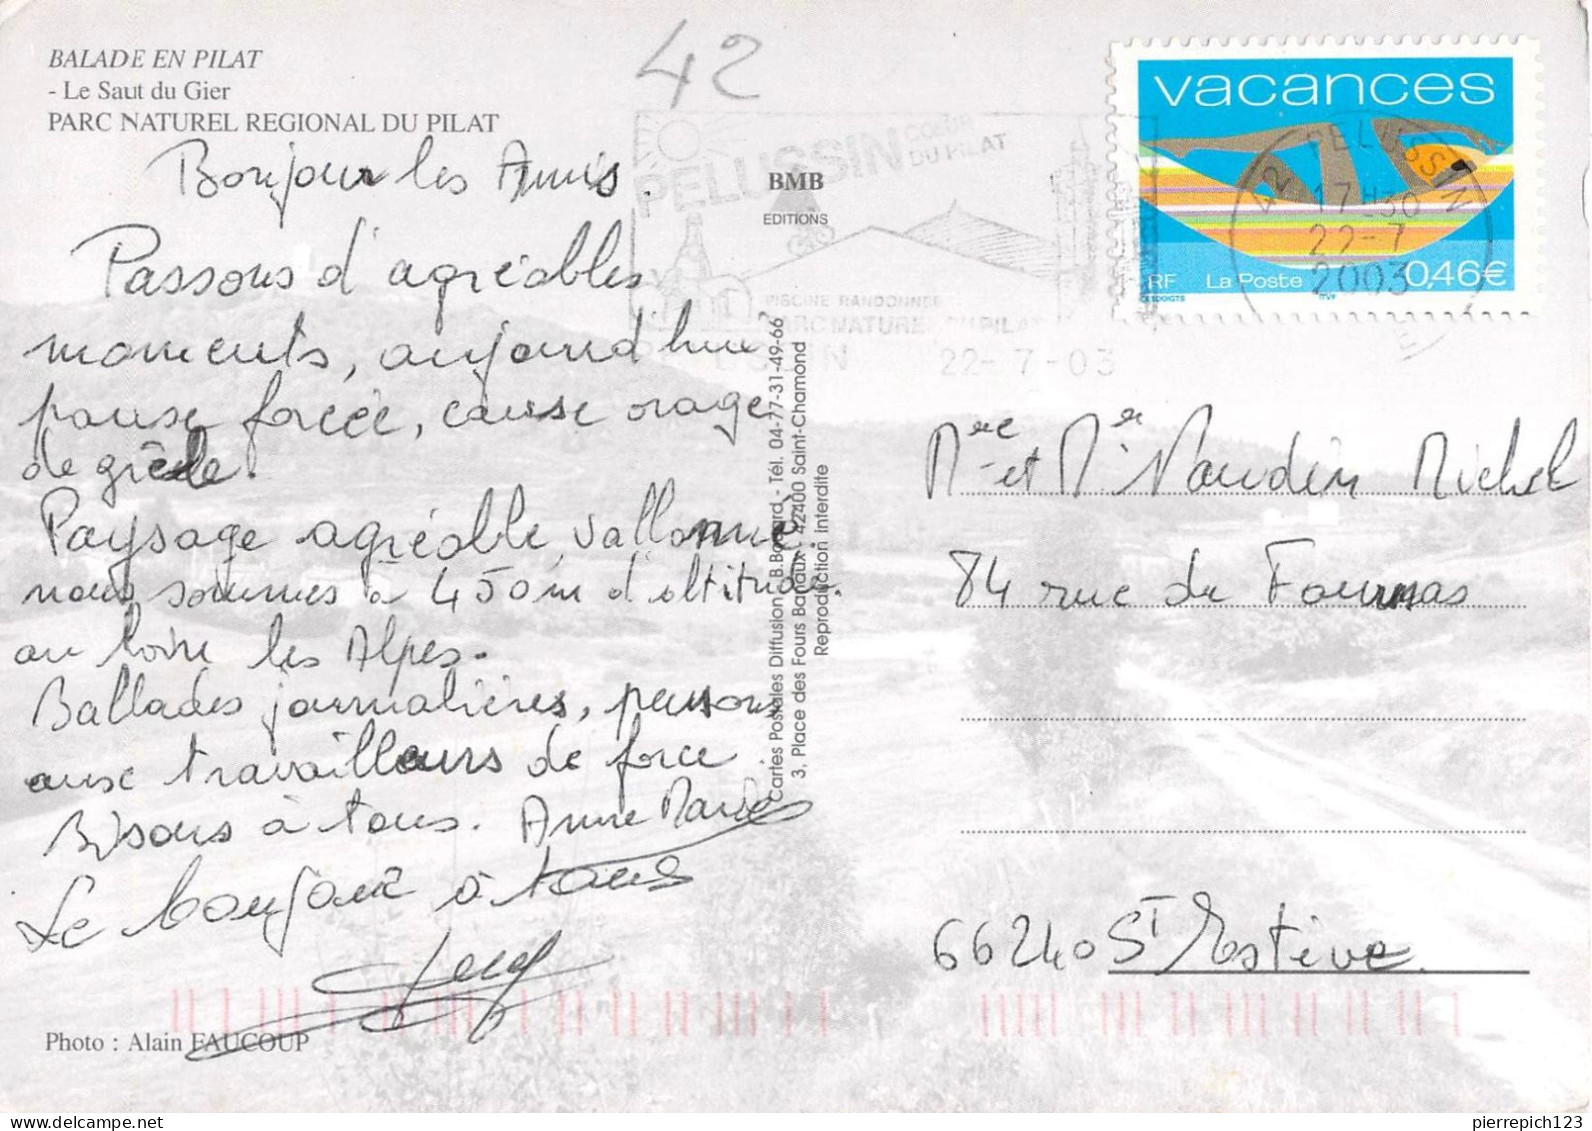 BALADE EN PILAT
- Le Saut du Gier
PARC NATUREL REGIONAL DU PILAT
42
Bonjour les Amis.
Passons d'agréables
moments, aujourd'hui
pause forcée, cause orage
de grêle.
Paysage agréable, vallonné
nous sommes à 450m d'altitude.
au loin les Alpes.
Ballades journalières, pensons
aux travailleurs de force
Bisous à tous. Anne Marie
Le bonjour à tous
Photo : Alain FAUCOUP
BMB
EDITIONS
Cartes Postales Diffusion - Tél. 04-77-31-49-66
3, Place des Fours Banaux - 42400 Saint-Chamond
Reproduction Interdite
PELUSSIN COEUR
DU PILAT
PISCINE RANDONNEE
PARC NATUREL DU PILAT
22-7-03
vacances
RF La Poste 0,46€
42 PELUSSIN
17H30
22-7
2003
Mme et Mr Naudin Michel
84 rue du Fournas
66240 St Estève
pierrepich123